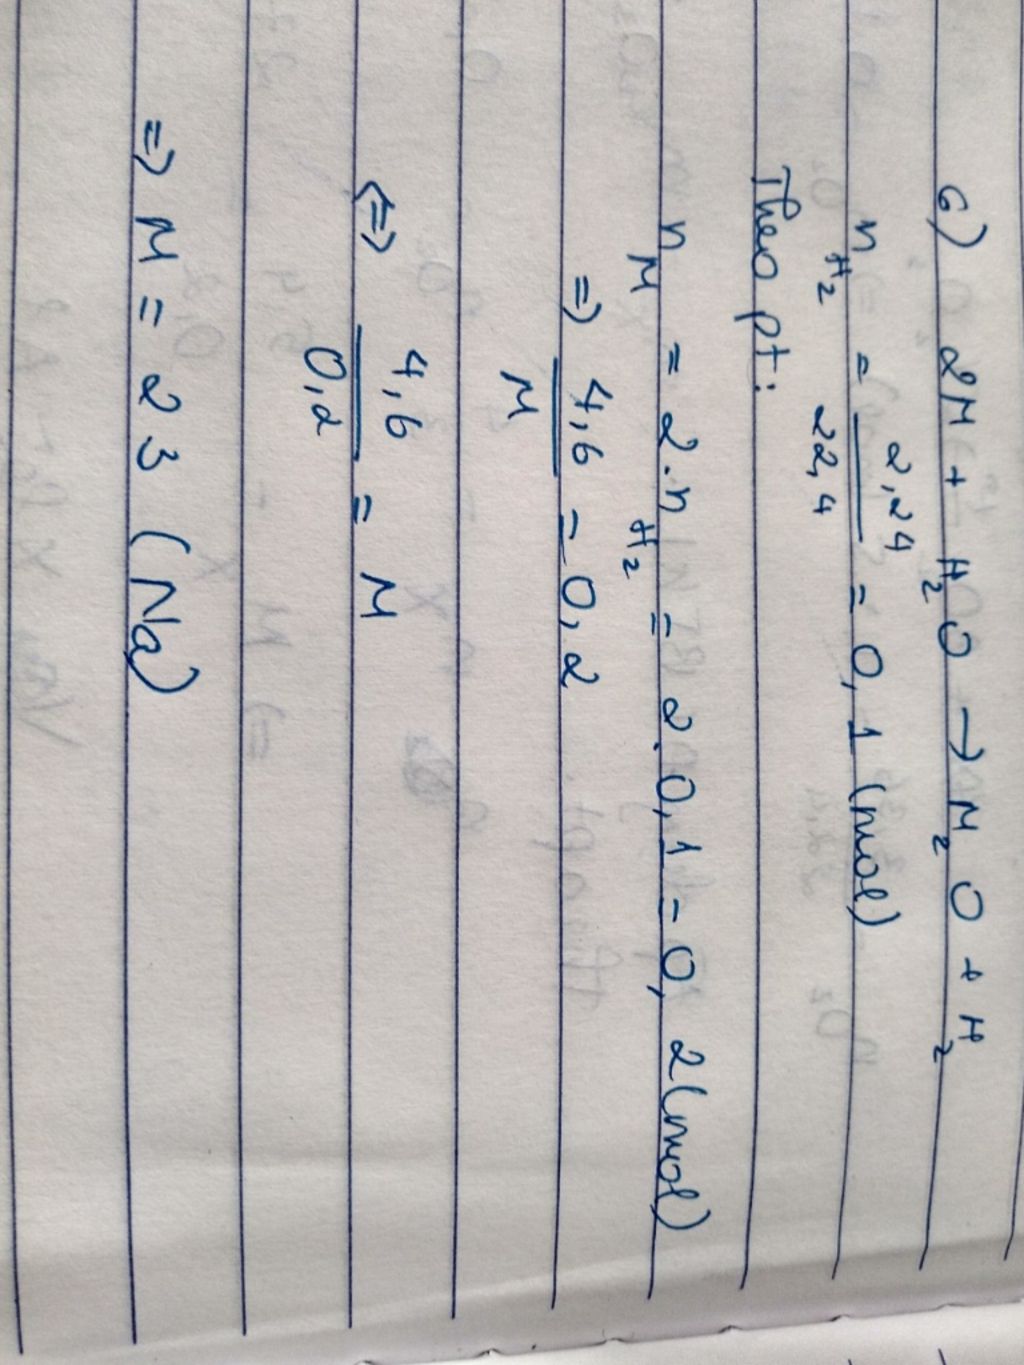 6) 2M + H2O → M2O + H2
nH2 = 2,24 / 22,4 = 0,1 (mol)
Theo pt:
nM = 2.nH2 = 2.0,1 = 0,2 (mol)
=> 4,6 / M = 0,2
<=> 4,6 / 0,2 = M
=> M = 23 (Na)